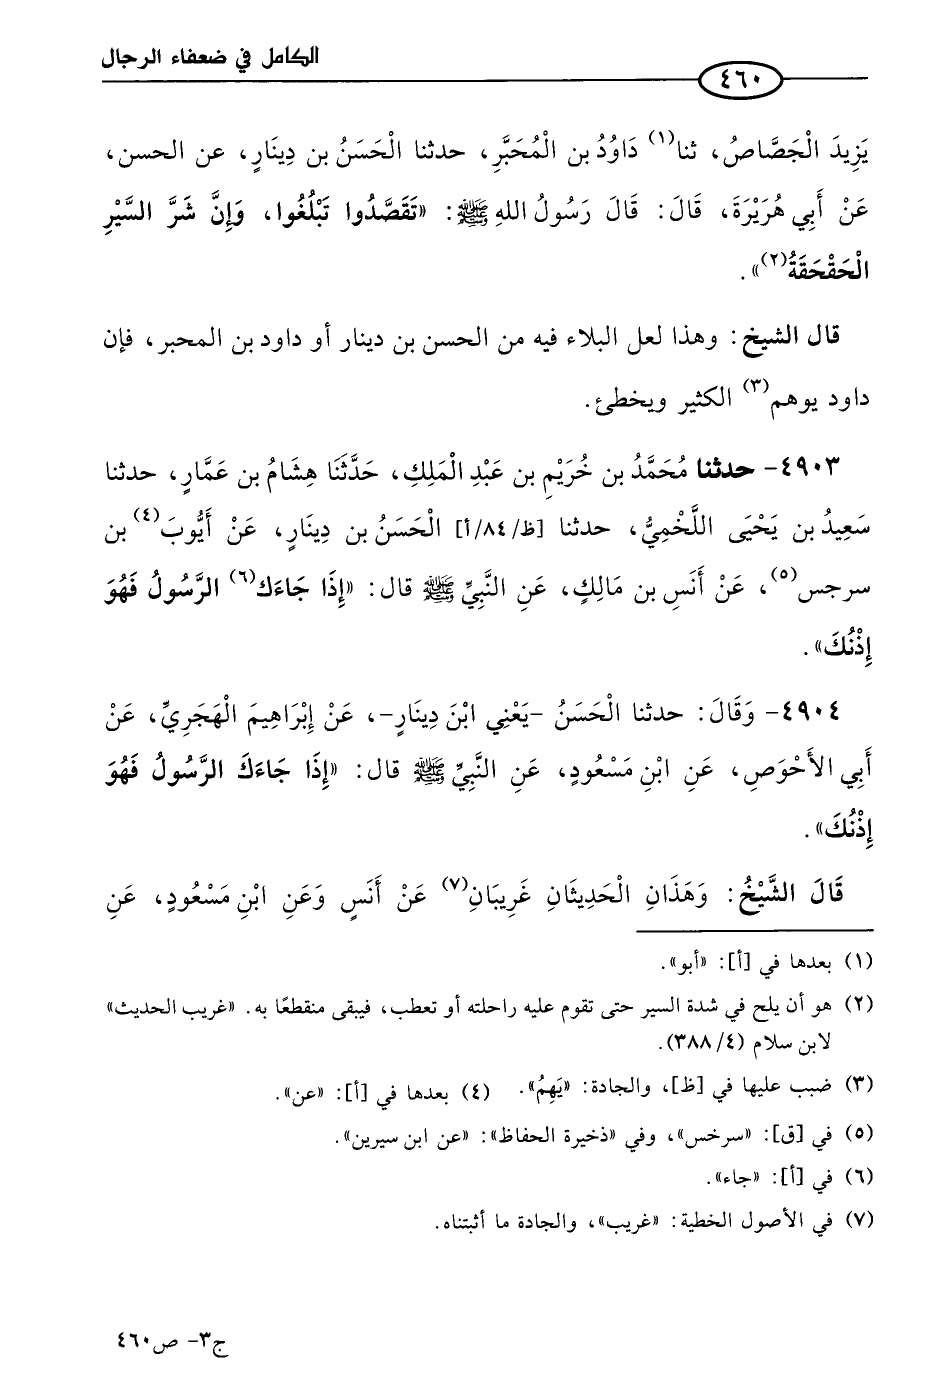 الكامل في ضعفاء الرجال
٤٦٠
يَزِيدَ الْجَصَّاصُ، ثنا(١) دَاوُدُ بن الْمُحَبَّرِ، حدثنا الْحَسَنُ بن دِينَارٍ، عن الحسن،
عَنْ أَبِي هُرَيْرَةَ، قَالَ: قَالَ رَسُولُ اللهِ ﷺ: «تَقَصَّدُوا تَبْلُغُوا، وَإِنَّ شَرَّ السَّيْرِ
الْحَقْحَقَةُ(٢)».
قال الشيخ: وهذا لعل البلاء فيه من الحسن بن دينار أو داود بن المحبر، فإن
داود يوهم(٣) الكثير ويخطئ.
٤٩٠٣- حدثنا مُحَمَّدُ بن خُرَيْمِ بن عَبْدِ الْمَلِكِ، حَدَّثَنَا هِشَامُ بن عَمَّارٍ، حدثنا
سَعِيدُ بن يَحْيَى اللَّخْمِيُّ، حدثنا [ظ/٨٤/أ] الْحَسَنُ بن دِينَارٍ، عَنْ أَيُّوبَ(٤) بن
سرجس(٥)، عَنْ أَنَسِ بن مَالِكٍ، عَنِ النَّبِيِّ ﷺ قال: «إِذَا جَاءَكَ(٦) الرَّسُولُ فَهُوَ
إِذْنُكَ».
٤٩٠٤- وَقَالَ: حدثنا الْحَسَنُ -يَعْنِي ابْنَ دِينَارٍ-، عَنْ إِبْرَاهِيمَ الْهَجَرِيِّ، عَنْ
أَبِي الأَحْوَصِ، عَنِ ابْنِ مَسْعُودٍ، عَنِ النَّبِيِّ ﷺ قال: «إِذَا جَاءَكَ الرَّسُولُ فَهُوَ
إِذْنُكَ».
قَالَ الشَّيْخُ: وَهَذَانِ الْحَدِيثَانِ غَرِيبَانِ(٧) عَنْ أَنَسٍ وَعَنِ ابْنِ مَسْعُودٍ، عَنِ
(١) بعدها في [أ]: «أبو».
(٢) هو أن يلح في شدة السير حتى تقوم عليه راحلته أو تعطب، فيبقى منقطعًا به. «غريب الحديث»
لابن سلام (٤/ ٣٨٨).
(٣) ضبب عليها في [ظ]، والجادة: «يَهِمُ». (٤) بعدها في [أ]: «عن».
(٥) في [ق]: «سرخس»، وفي «ذخيرة الحفاظ»: «عن ابن سيرين».
(٦) في [أ]: «جاء».
(٧) في الأصول الخطية: «غريب»، والجادة ما أثبتناه.
ج٣- ص٤٦٠